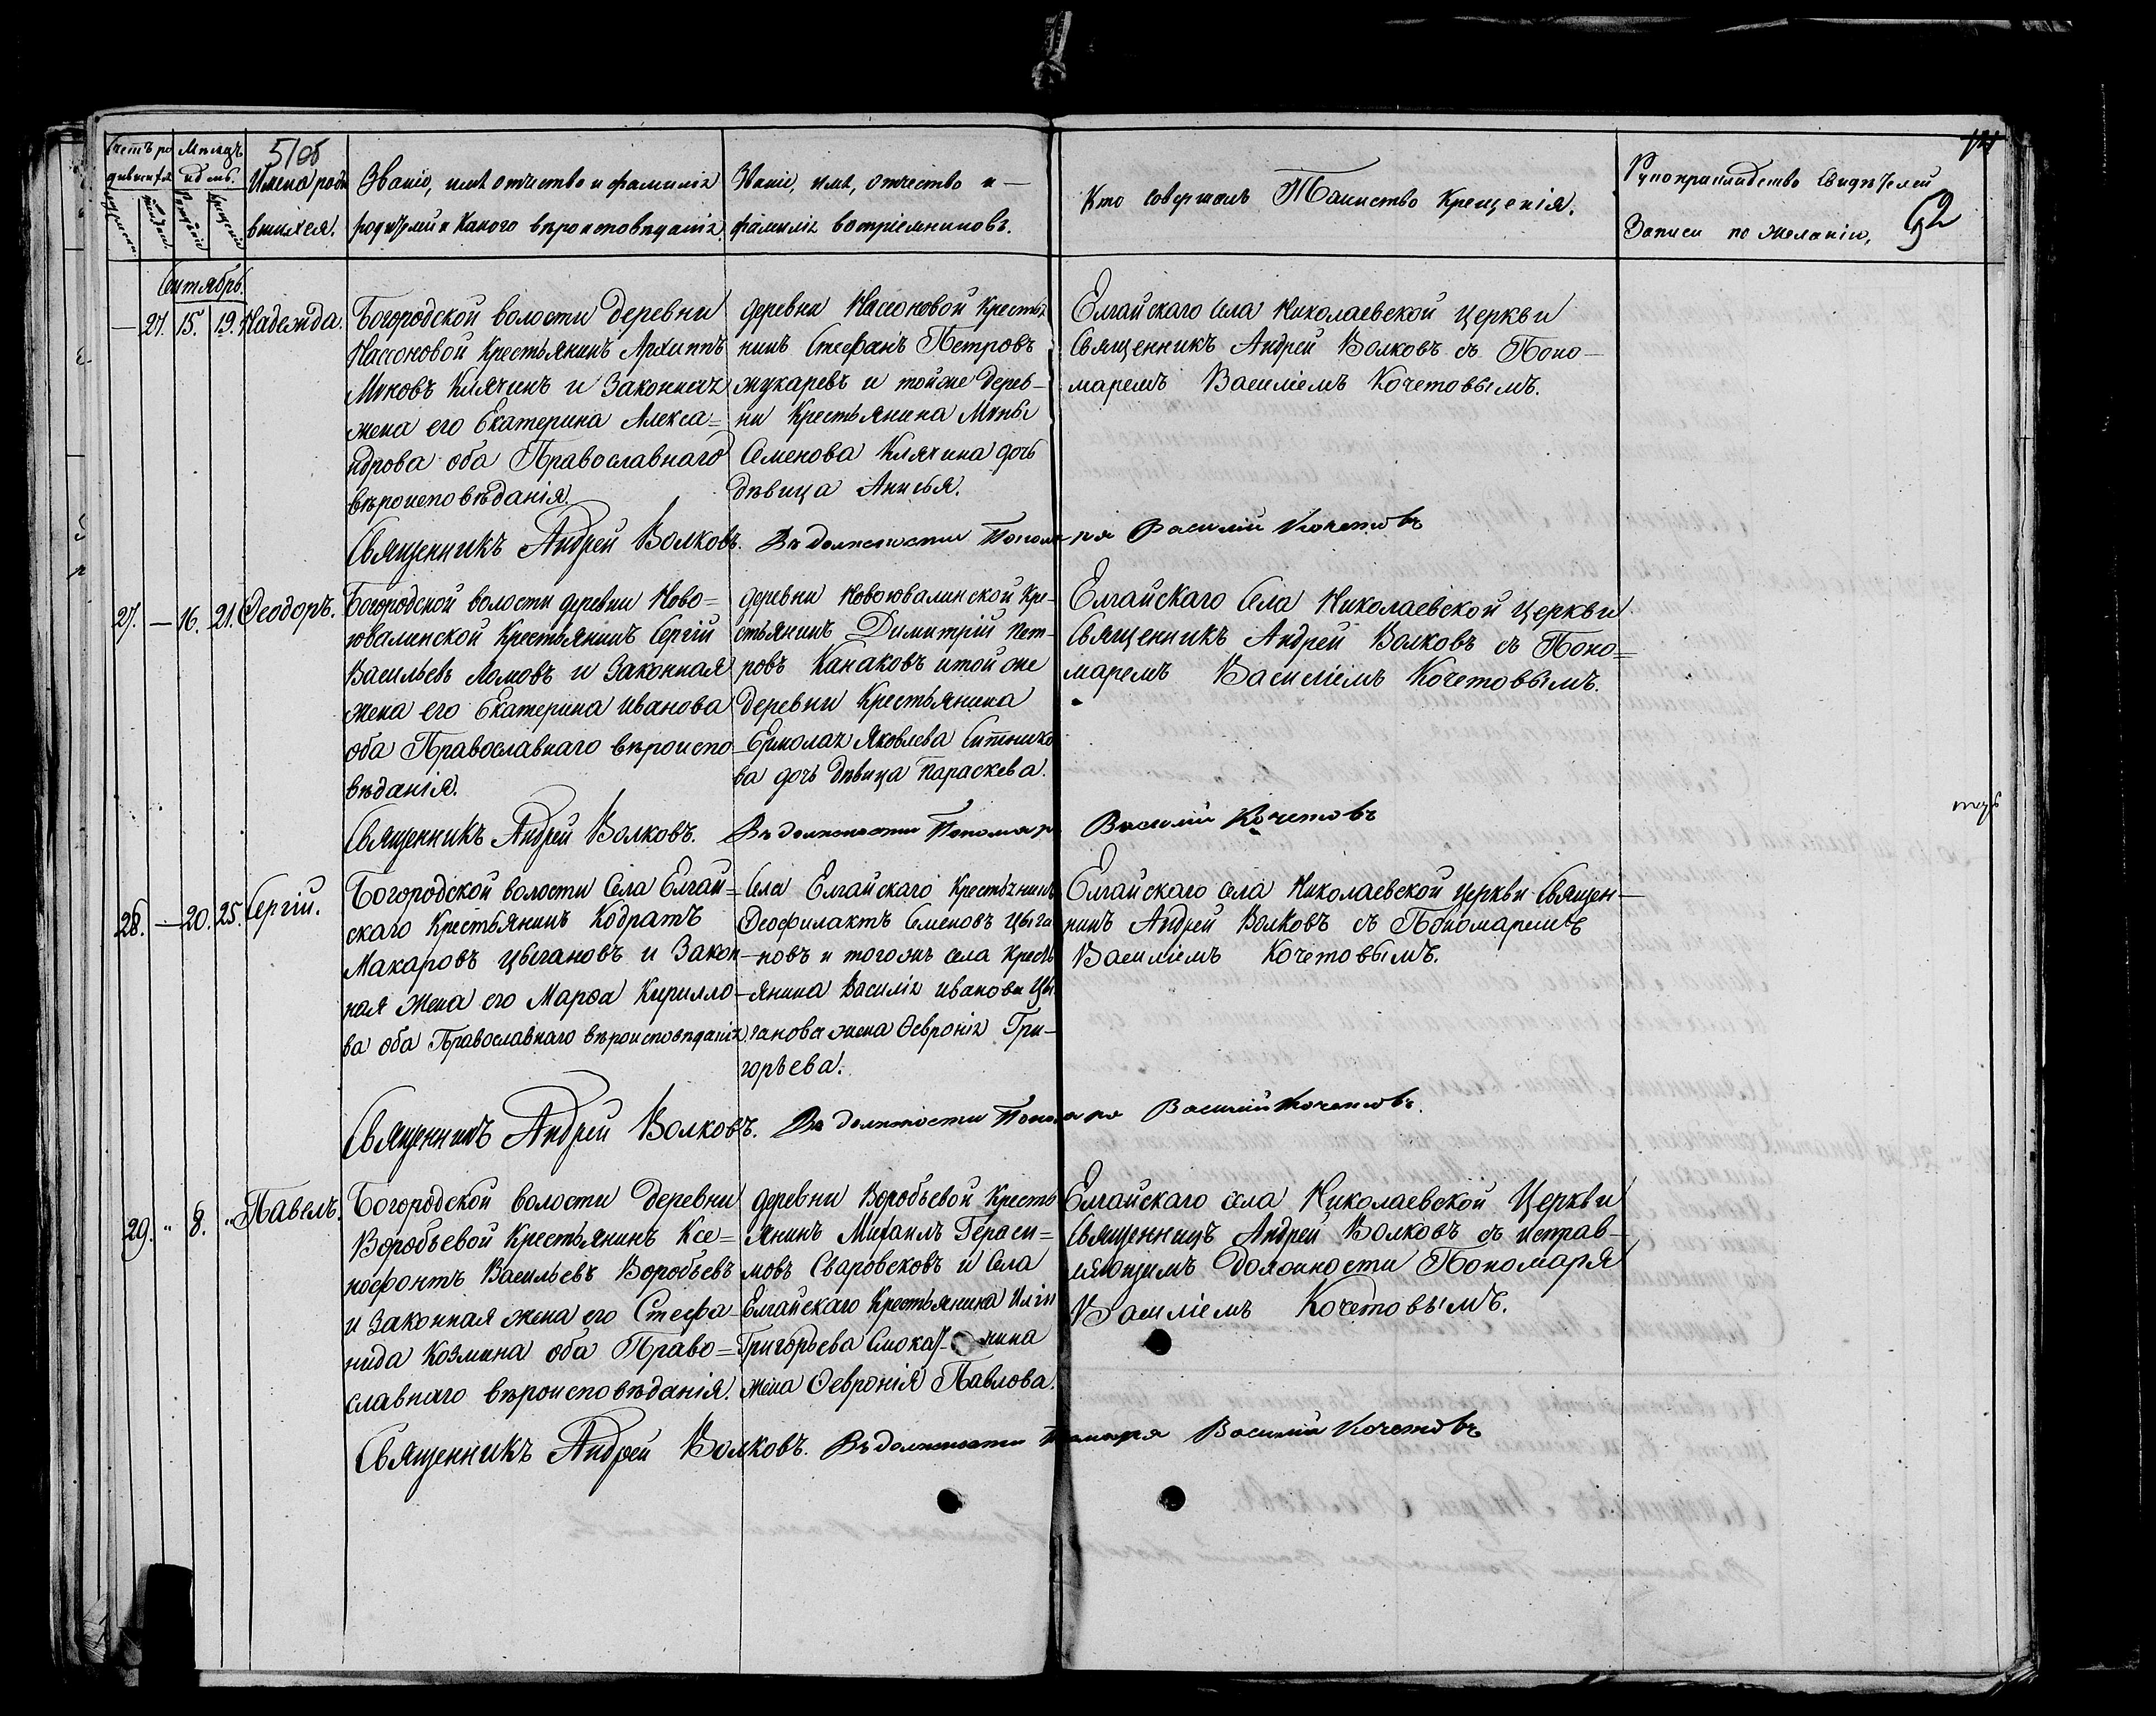 Счетъ ро
дившихся
Мѣсяцъ
и день.
5/об
Имена роди
вшихся.
Званіе, имя отчество и фамилія
родителей и какого вѣроисповѣданія.
Званіе, имя, отчество и —
фамилія воспріемниковъ.
Кто совершалъ Таинство Крещенія.
Рукоприкладство Свидѣтелей
Записи по желанію,
92
Сентябрь.
— 21. 15. 19. Надежда.
Богородской волости деревни
Нассоновой Крестьянинъ Архиппъ
Миновъ Клячинъ и Законная
жена его Екатерина Алекса=
ндрова оба Православнаго
вѣроисповѣданія.
деревни Нассоновой Крестья
нинъ Стефанъ Петровъ
жукаревъ и тойже дерев-
ни Крестьянина Мины
Семенова Клячина дочь
дѣвица Анисья.
Елгайскаго Села Николаевской церкви
Священникъ Андрей Волковъ съ Поно-
маремъ Василіемъ Кочетовымъ.
Священникъ Андрей Волковъ. Въ должности Пономаря Василій Кочетовъ
27. — 16. 21. Ѳеодоръ.
Богородской волости деревни Ново=
ювалинской Крестьянинъ Сергій
Васильевъ Ломовъ и Законная
жена его Екатерина Иванова
оба Православнаго вѣроиспо
вѣданія.
деревни Новоювалинской Кре-
стьянинъ Димитрій Пет-
ровъ Канаковъ итой же
деревни Крестьянина
Ермолая Яковлева Ситнико
ва дочь дѣвица Параскева.
Елгайскаго Села Николаевской церкви
Священникъ Андрей Волковъ съ Поно=
маремъ Василіемъ Кочетовымъ.
Священникъ Андрей Волковъ. Въ должности Пономаря Василій Кочетовъ
28. — 20. 25. Сергій.
Богородской волости Села Елгай=
скаго Крестьянинъ Кодратъ
Макаровъ цыгановъ и Закон
ная жена его Марѳа Кирилло
ва оба Православнаго вѣроисповѣданія
Села Елгайскаго Крестьянинъ
Ѳеофилактъ Семеновъ Цыга
-новъ и тогожъ села Кресть
-янина Василія иванова Цы
ганова жена Ѳевронія Гри-
горьева.
Елгайскаго села Николаевской церкви Священ-
никъ Андрей Волковъ съ Пономаремъ
Василіемъ Кочетовымъ.
Священникъ Андрей Волковъ. Въ должности Пономаря Василій Кочетовъ.
29. „ 8. „ Павелъ.
Богородской волости деревни
Воробьевой Крестьянинъ Ксе=
нофонтъ Васильевъ Воробьевъ
и Законная жена его Стефа-
нида Козмина оба Право=
славнаго вѣроисповѣданія.
деревни Воробьевой Кресть
янинъ Михаилъ Гераси=
мовъ Сваровсковъ и Села
Елгайскаго Крестьянина Иліи
Григорьева
жена Ѳевронія Павлова.
Елгайскаго села Николаевской Церкви
Священницъ Андрей Волковъ съ исправ-
ляющимъ должности Пономаря
Василіемъ Кочетовымъ.
Священникъ Андрей Волковъ. Въ должности Пономаря Василій Кочетовъ